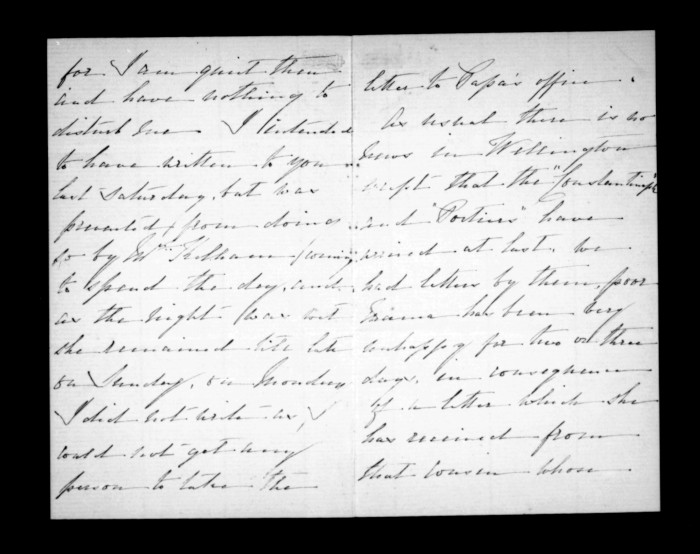 for I am quiet then
and have nothing to
disturb me. I intended
to have written to you
last Saturday, but was
prevented from doing
so by Mrs Kelham coming
to spend the day, and
as the night was wet
she remained till late
on Sunday, on Monday
I did not write as, I
could not get any
person to take the
letter to Papa's office.
As usual there is no
news in Wellington
except that the "Constantine"
and "Porteus" have
arrived at last, we
had letters by them, poor
has been very
unhappy for two or three
days, in consequence
of a letter which she
has received from
that cousin whose